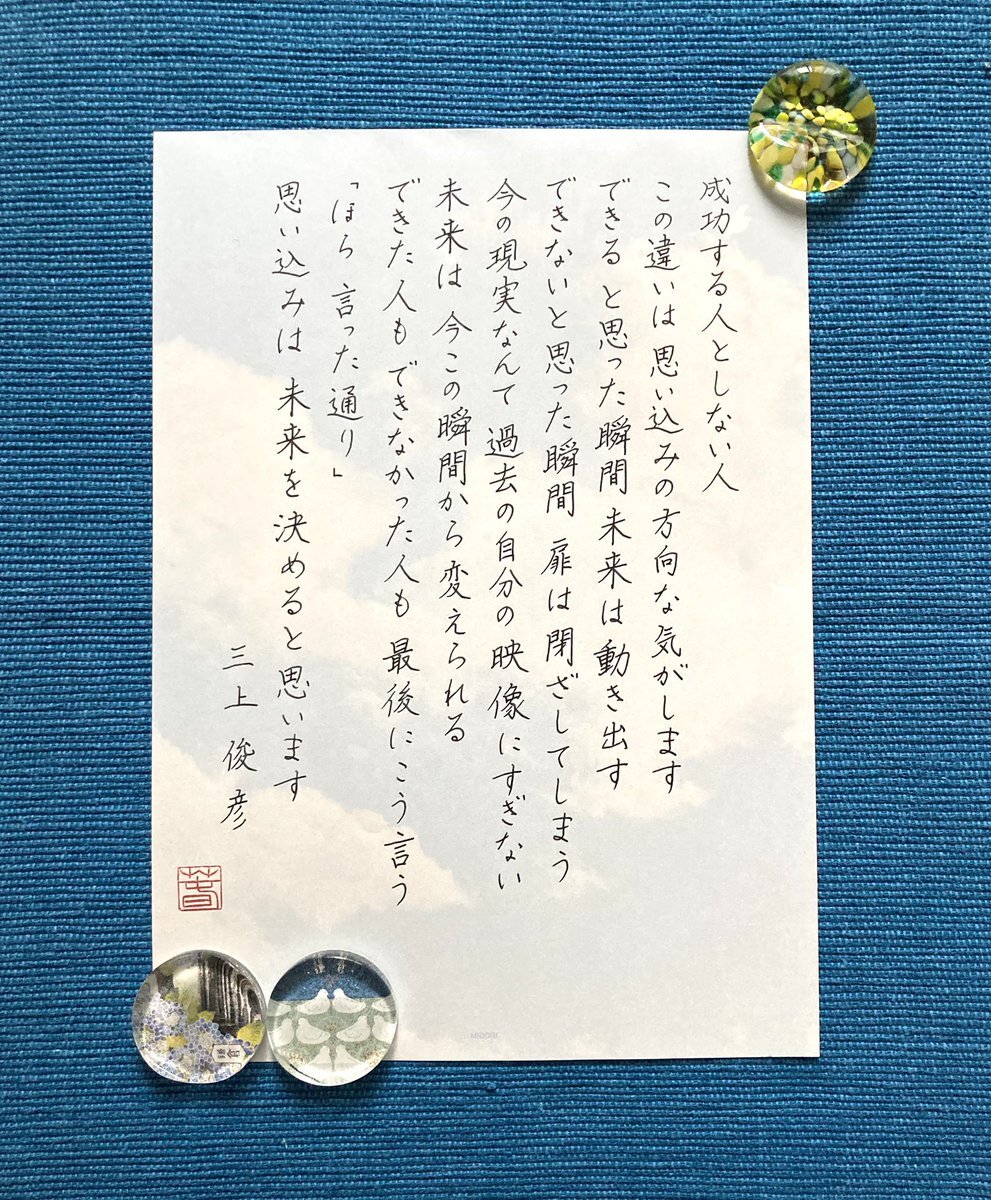 成功する人としない人
この違いは 思い込みの方向な気がします
できる と思った瞬間 未来は動き出す
できないと思った瞬間 扉は閉ざしてしまう
今の現実なんて 過去の自分の映像にすぎない
未来は 今この瞬間から変えられる
できた人もできなかった人も 最後にこう言う
「ほら 言った通り」
思い込みは 未来を決めると思います
三上俊彦
MIDORI